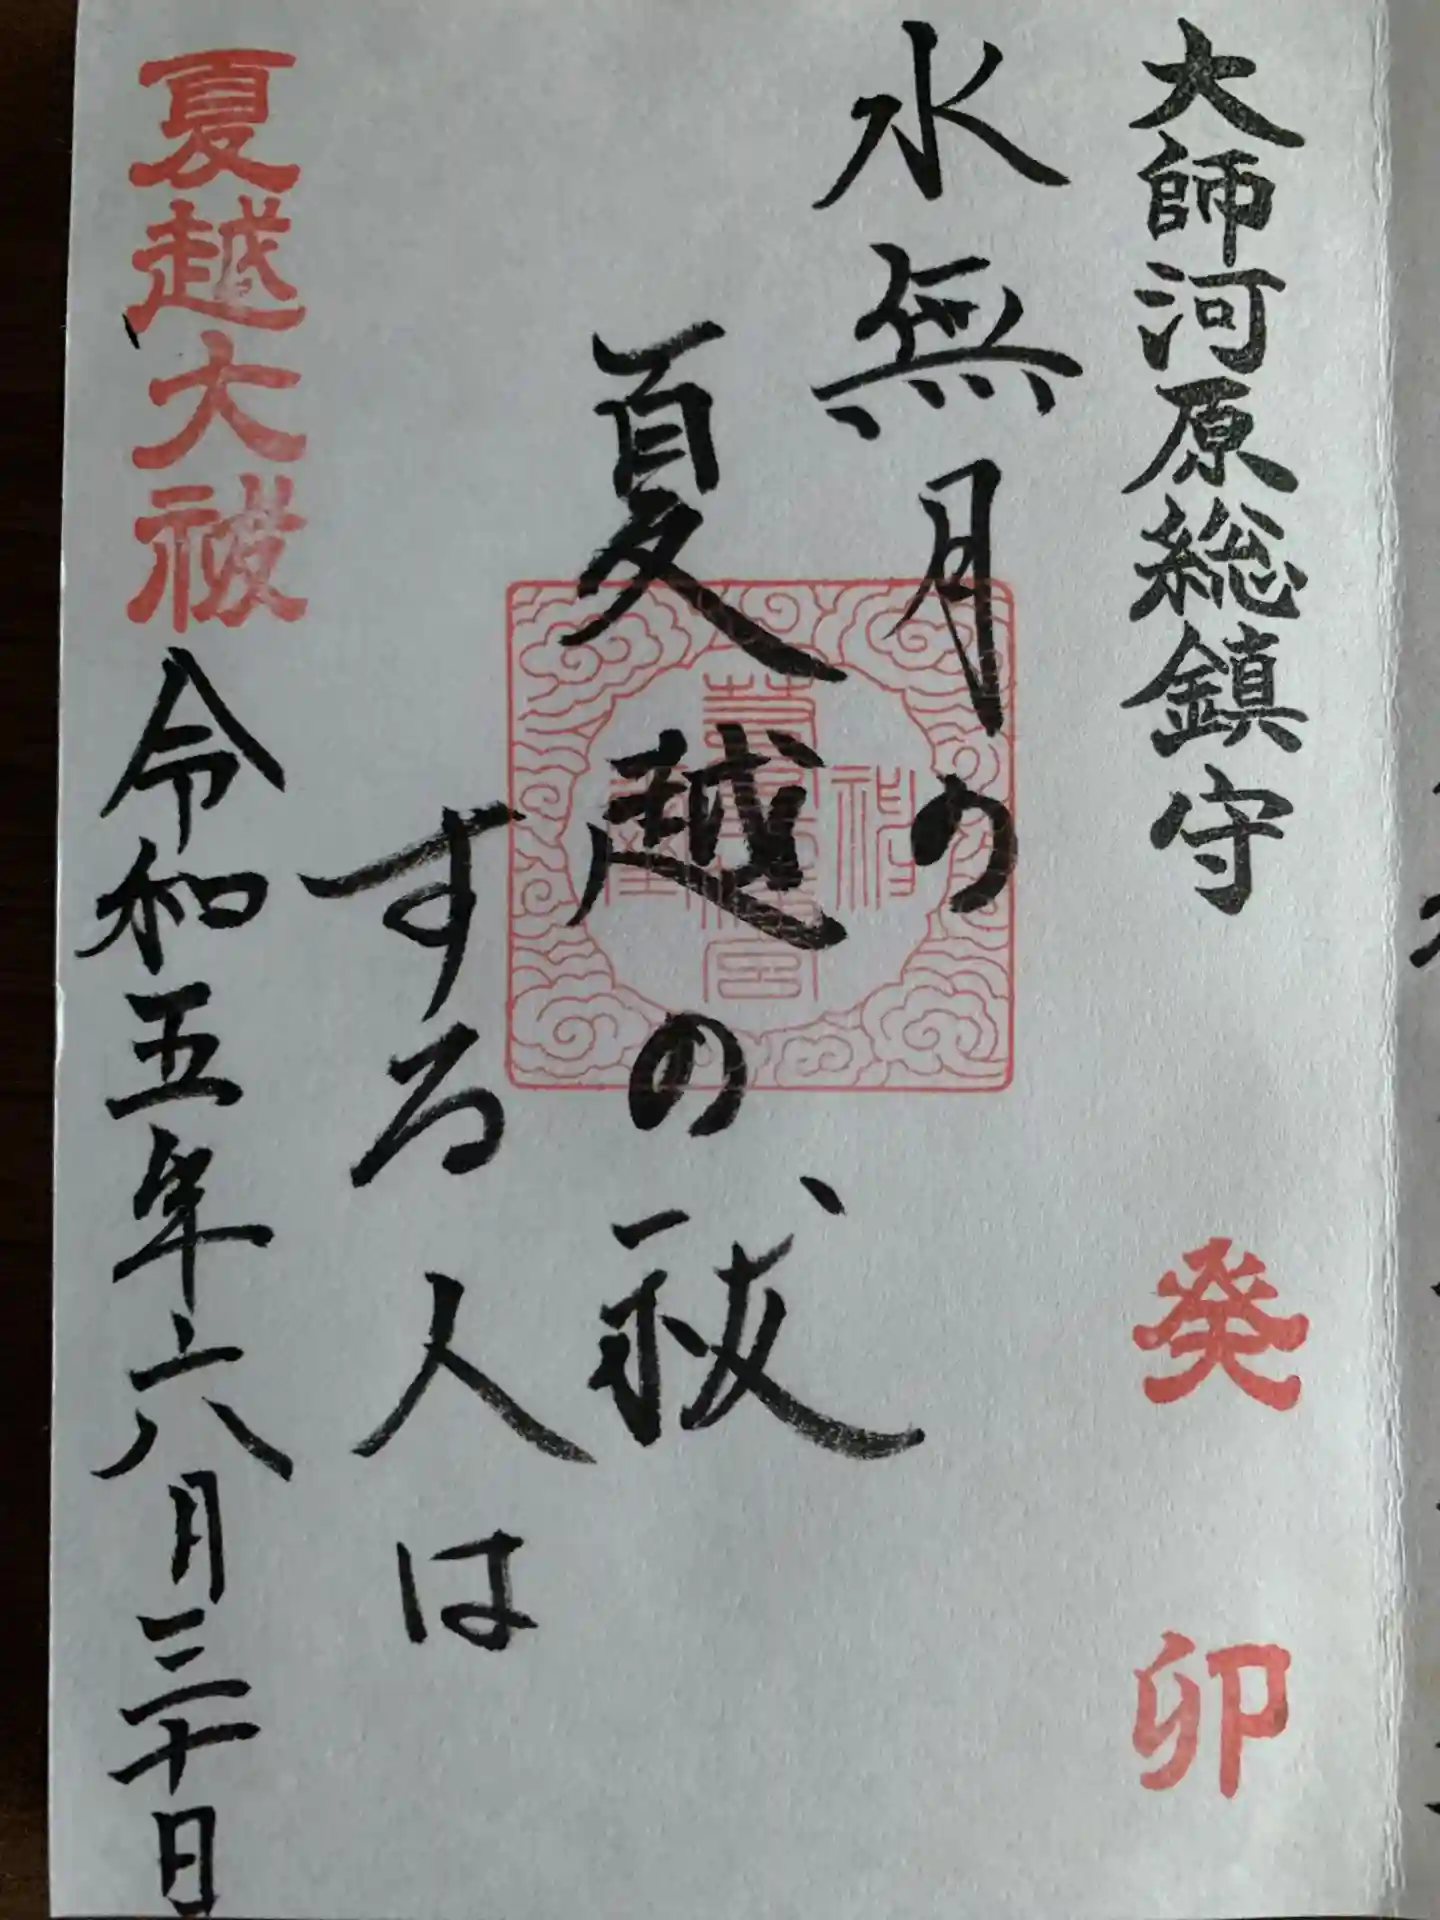 大師河原総鎮守
癸卯
水無月の
夏越の祓
する人は
夏越大祓
令和五年六月三十日